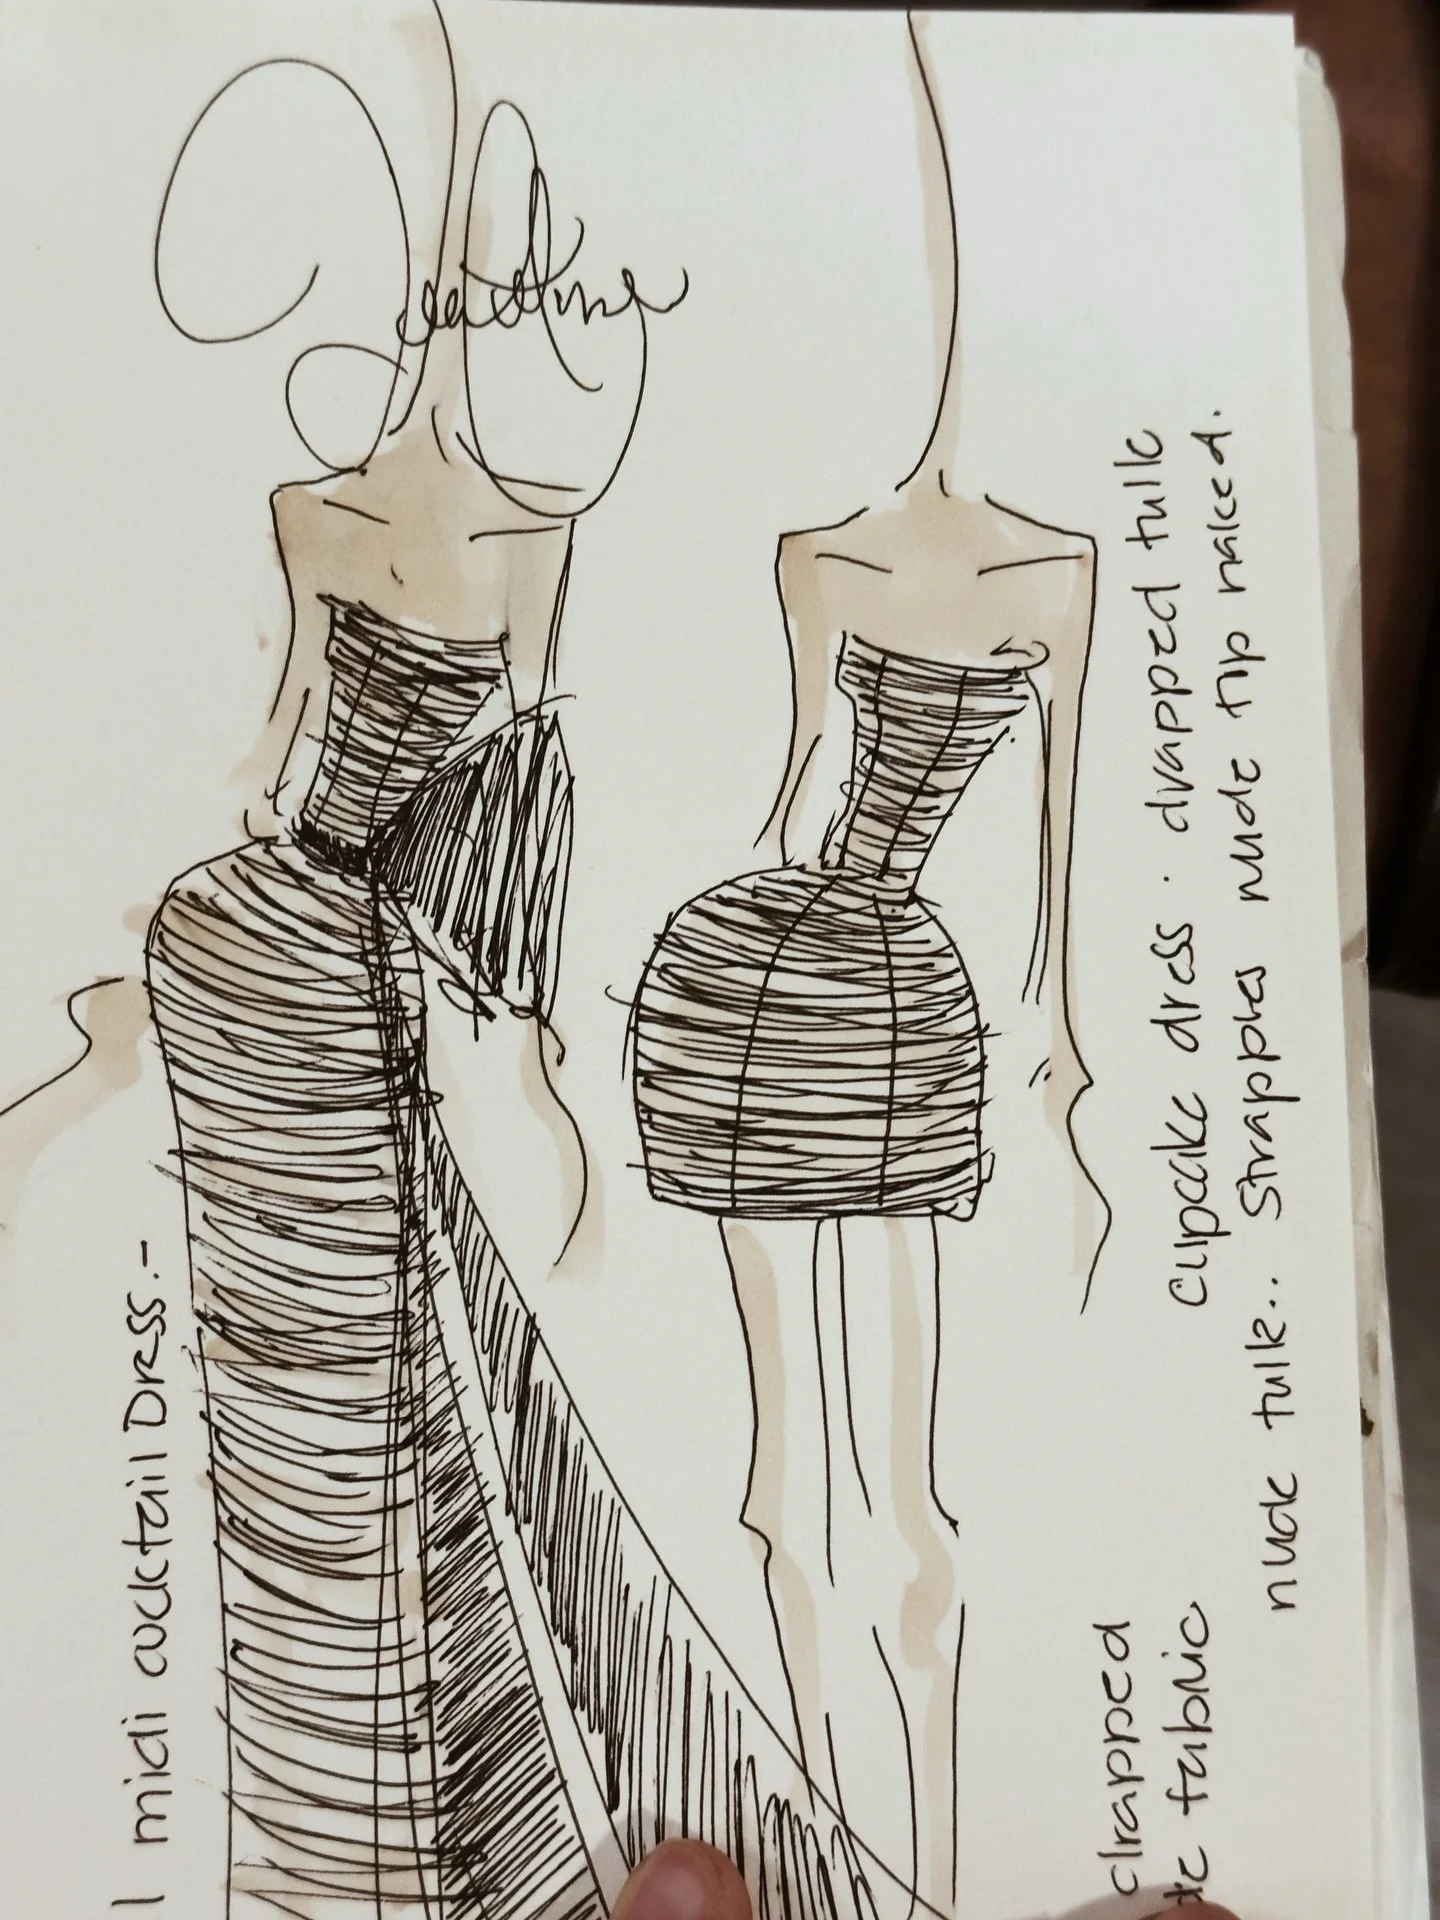 midi cocktail Dress.-
cupcake dress. drapped tulle
Strapples nude tip naked.
nude tulle..
drapped
fabric